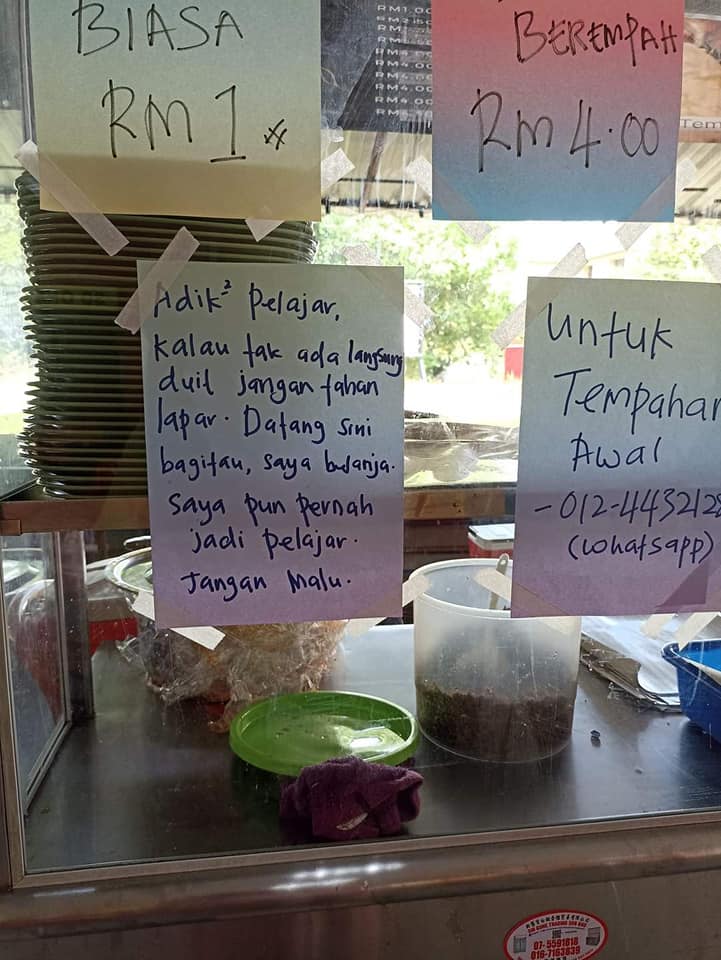 BIASA
RM 1
RM1.00
RM4.00
RM4.00
RM4.00
BEREMPAH
RM 4.00
Tem
Adik² Pelajar,
Kalau tak ada langsung
duit jangan tahan
lapar. Datang sini
bagitau, saya belanja.
Saya pun pernah
jadi pelajar.
Jangan Malu.
Untuk
Tempahan
Awal
-012-4432128
(whatsapp)
07-5591818
016-7163839